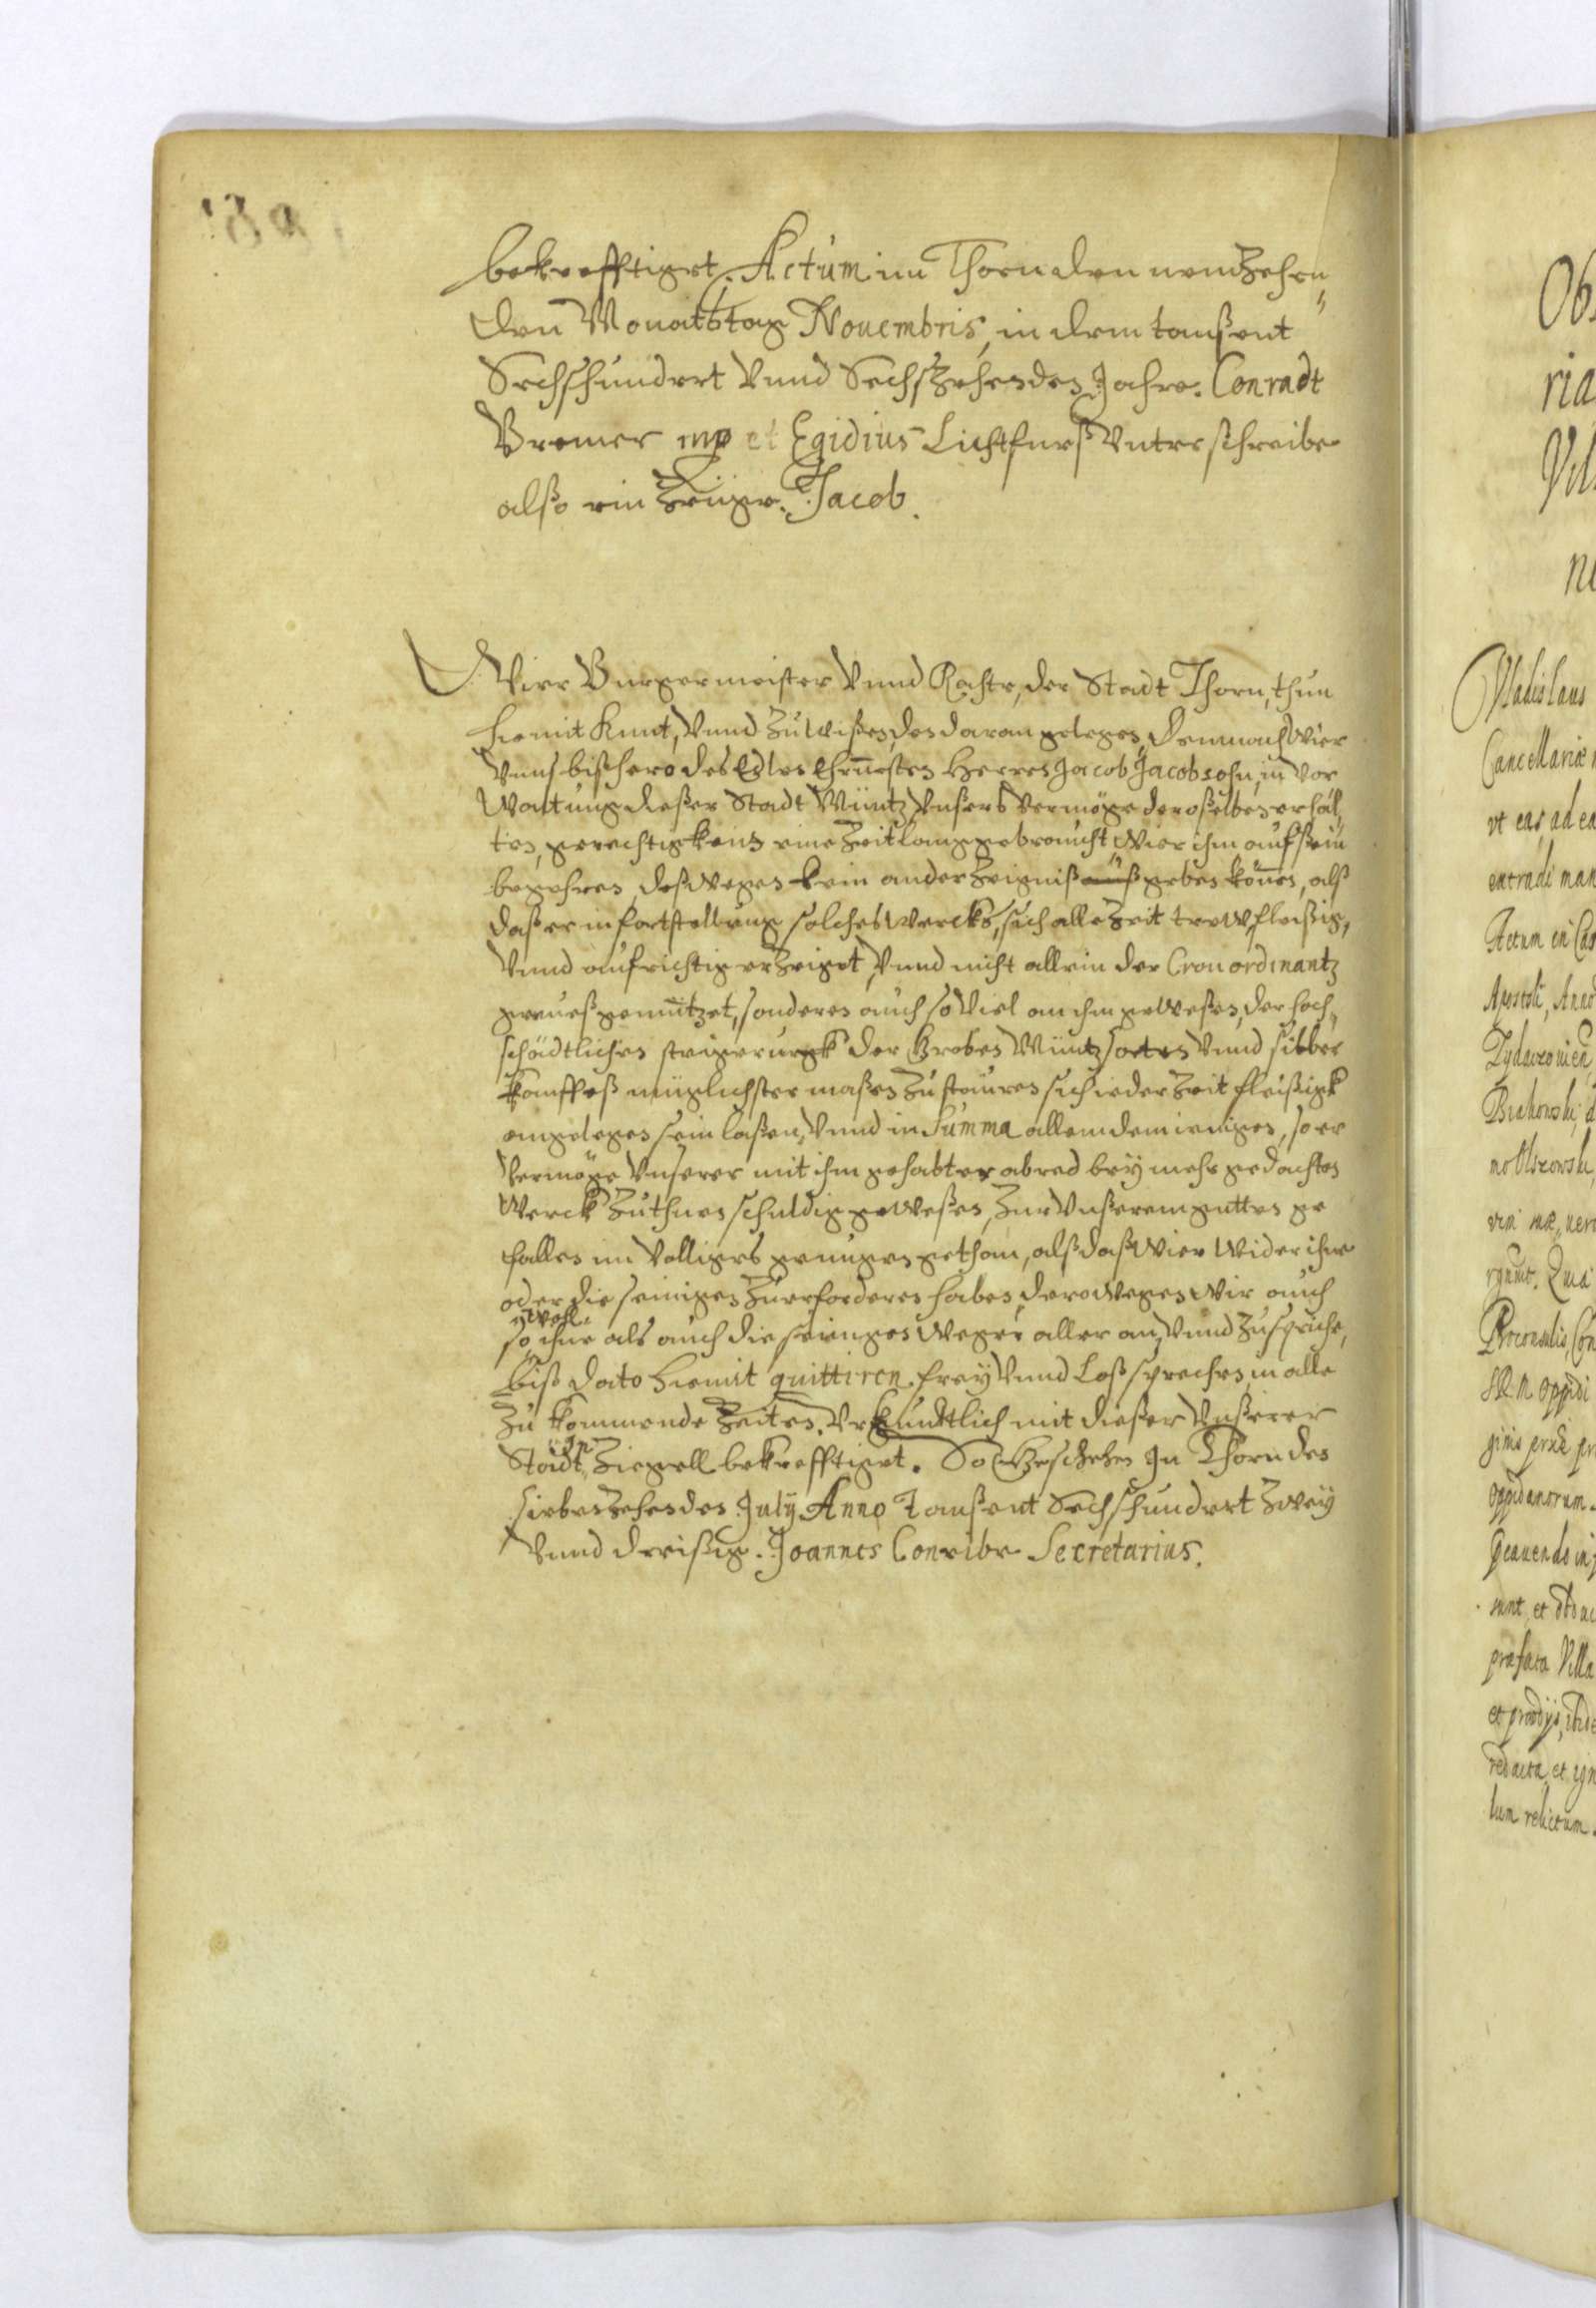 bekrefftiget. Actum im Thorn den neudzehen„
den Monatstag Nouembris, in dem taußent
Sechshundert Vnnd Sechszehenden Jahre. Conradt
Bremer mp et Egidius Lichtfuß Vnterschreibe
alßo ein Zeuge. Jacob.
Wier Burgermeister Vnnd Rahte, der Stadt Thorn, thun
hiemit Kunt, Vnnd Zu wißen, den daran gelegen, Demnach Wier
Vnns bißhero des Edlen Ehrnuesten Herren Jacob Jacobsohn, in Vor
Waltung dießer Stadt Müntz, Vnßers Vermöge deroßelben erhal„
ten, gerechtigkeit eine Zeitlang gebraucht Wier ihm auf sein
begehren, deßwegen kein ander Zeigniß geben können, alß
daß er in fortstellung solches Wercks, sich alle Zeit trew, fleißig,
Vnnd aufrichtig erZeiget, Vnnd nicht allein der Cron ordinantz
gemeß gemüntzet, sonderen auch so Viel an ihm geweßen, der hoch„
schädtlichen steigerungk der Groben Müntzsorten Vnnd silber
kauffeß müglichster maßen Zu steuren sich ieder Zeit fleißigk
angelegen sein laßen, Vnnd in Summa allem demienigen, so er
Vermöge Vnserer mit ihm gehabter abred bey mehr gedachten
Werck Zu thuen schuldig geweßen, Zur Vnßerem gutten ge
fallen im Volliges genugen gethan, alß daß Wier Wider ihne
oder die seinigen Zuerforderen haben, derowegen Wir auch
so Woll ihne als auch die seinigen Wegen aller an Vnnd Zusprüche,
biß dato hiemit quittiren. frey Vnnd Loß sprechen, in alle
Zu kommende Zeiten. Vrkundtlich mit dießer Vnßerer
Stadt In„Ziegell bekrefftiget. So Geschehen In Thorn den
siebenzehenden July Anno Taußent Sechshundert Zwey
Vnnd dreißig. Joannes Secretarius.
Ob
ria
Vladislaus
Cancellariæ
vt eas, ad ea
extradi man
Actum in Cas
Apostoli, Anno
vræ suæ, uero
Proconsulis, Con
S. R. M. Oppidi
oppidanorum.
sunt, et
præfata Villa
et prædijs,
redacta, et
lum relictum.